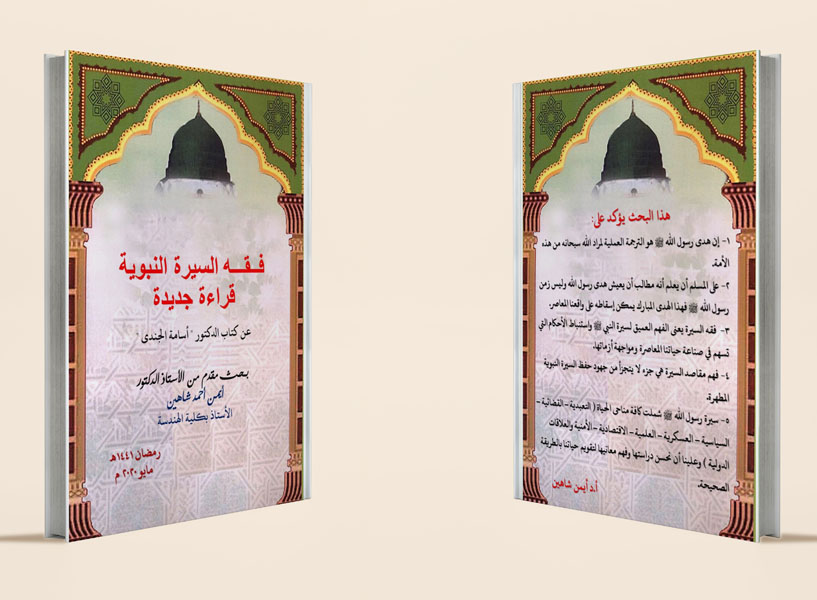 فـقـــه السيرة النبوية
قراءة جديدة
عن كتاب الدكتور " أسامة الجندى "
بحث مقدم من الأستاذ الدكتور
أيمن أحمد شاهين
الأستاذ بكلية الهندسة
رمضان ١٤٤١هـ
مايو ٢٠٢٠ م
هذا البحث يؤكد على:
١- إن هدى رسول الله ﷺ هو الترجمة العملية لمراد الله سبحانه من هذه
الأمة.
٢- على المسلم أن يعلم أنه مطالب أن يعيش هدى رسول الله وليس زمن
رسول الله ﷺ فهذا الهدى المبارك يمكن إسقاطه على واقعنا المعاصر.
٣- فقه السيرة يعنى الفهم العميق لسيرة النبي ﷺ واستنباط الأحكام التي
تسهم في صناعة حياتنا المعاصرة ومواجهة أزماتها.
٤- فهم مقاصد السيرة هي جزء لا يتجزأ من جهود حفظ السيرة النبوية
المطهرة.
٥- سيرة رسول الله ﷺ شملت كافة مناحى الحياة ( التعبدية - القضائية -
السياسية - العسكرية - العلمية - الاقتصادية - الأمنية والعلاقات
الدولية ) وعلينا أن نحسن دراستها وفهم معانيها لتقويم حياتنا بالطريقة
الصحيحة.
أ.د أيمن شاهين